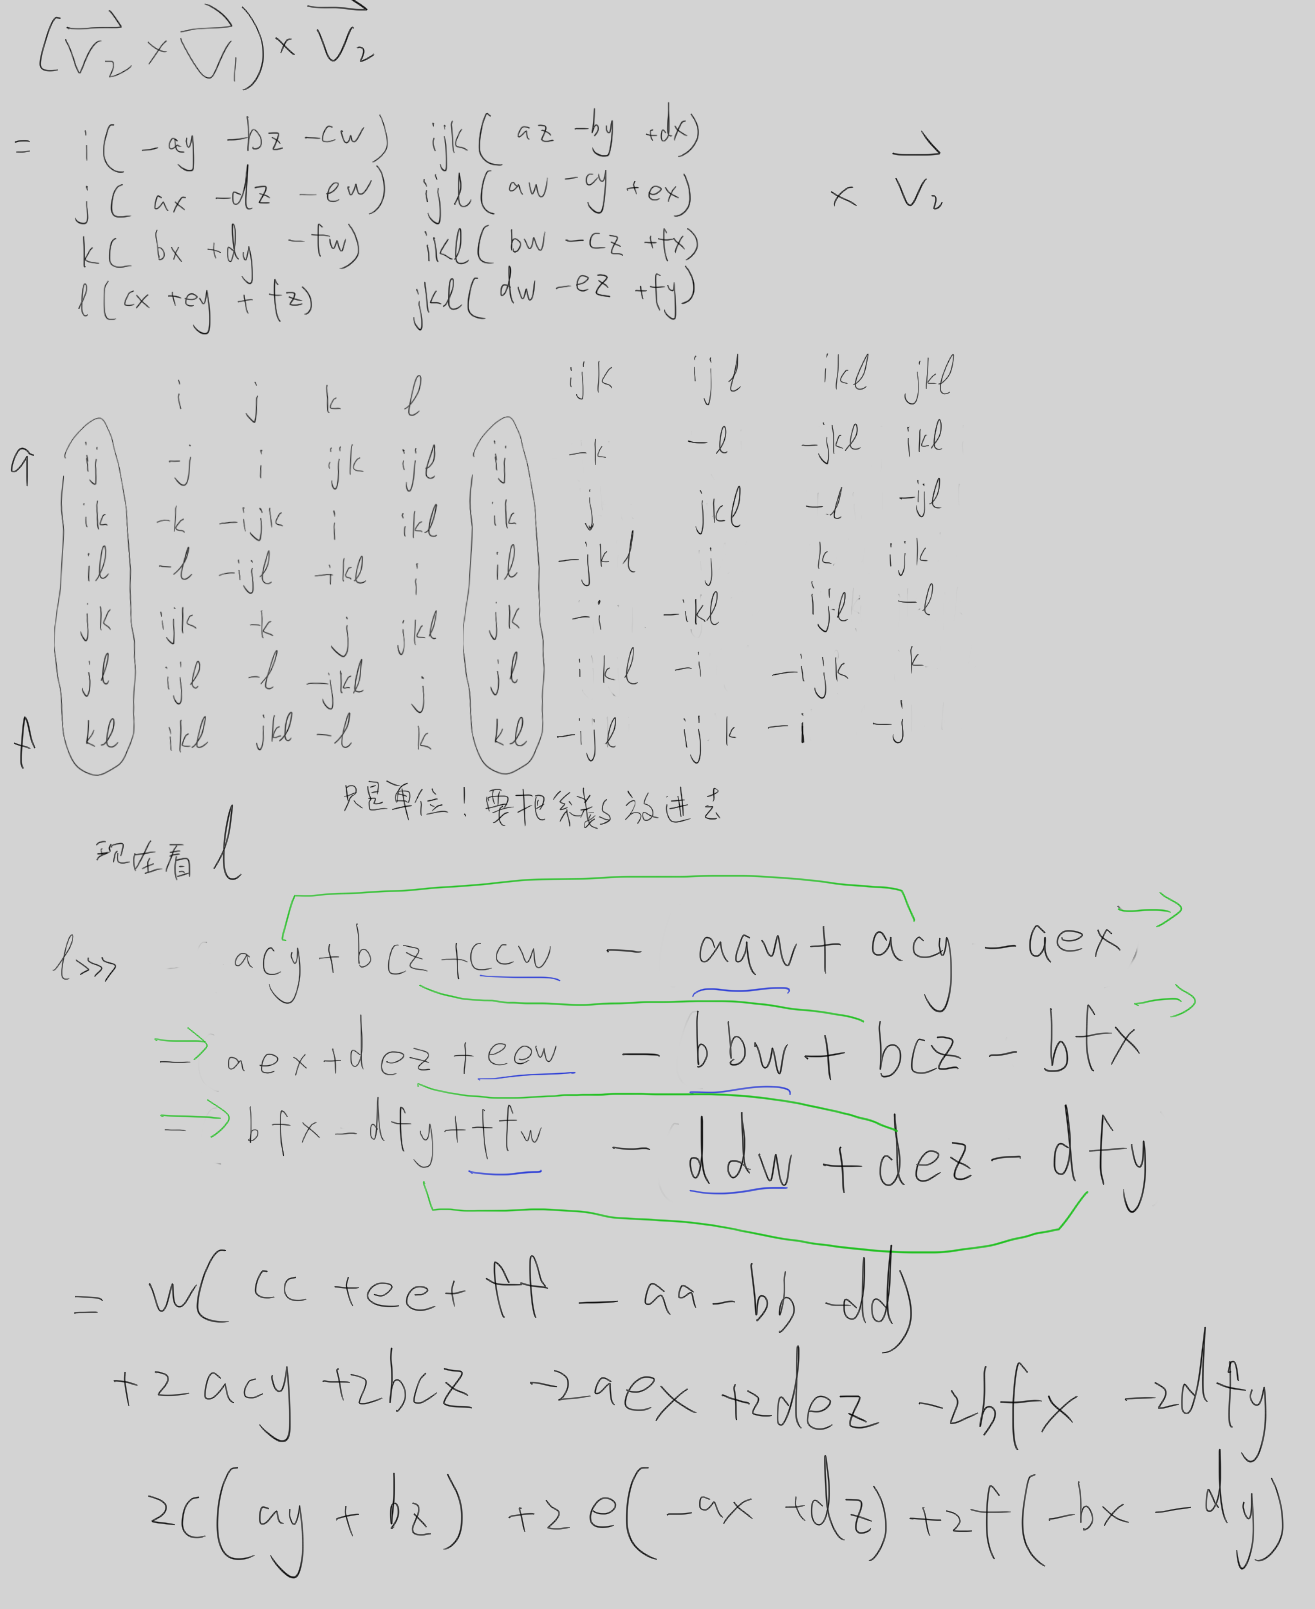 (V₂ × V₁) × V₂
= i( -ay -bz -cw) ijk( az -by +dx)
j( ax -dz -ew) ijl( aw -cy +ex) × V₂
k( bx +dy -fw) ikl( bw -cz +fx)
l( cx +ey + fz) jkl( dw -ez +fy)
i j k l ijk ijl ikl jkl
a ij -j i ijk ijl ij -k -l -jkl ikl
ik -k -ijk i ikl ik j jkl -l -ijl
il -l -ijl -ikl i il -jkl j k ijk
jk ijk -k j jkl jk -i -ikl ijl -l
jl ijl -l -jkl j jl ikl -i -ijk k
f kl ikl jkl -l k kl -ijl ijk -i -j
只是單位！要把系数放进去
现在看 l
l>>> acy + bcz + ccw - aaw + acy - aex →
⇒ aex + dez + eew - bbw + bcz - bfx →
⇒ bfx - dfy + ffw - ddw + dez - dfy
= w( cc + ee + ff - aa - bb - dd)
+2acy +2bcz -2aex +2dez -2bfx -2dfy
2c( ay + bz) +2e( -ax +dz) +2f( -bx - dy)